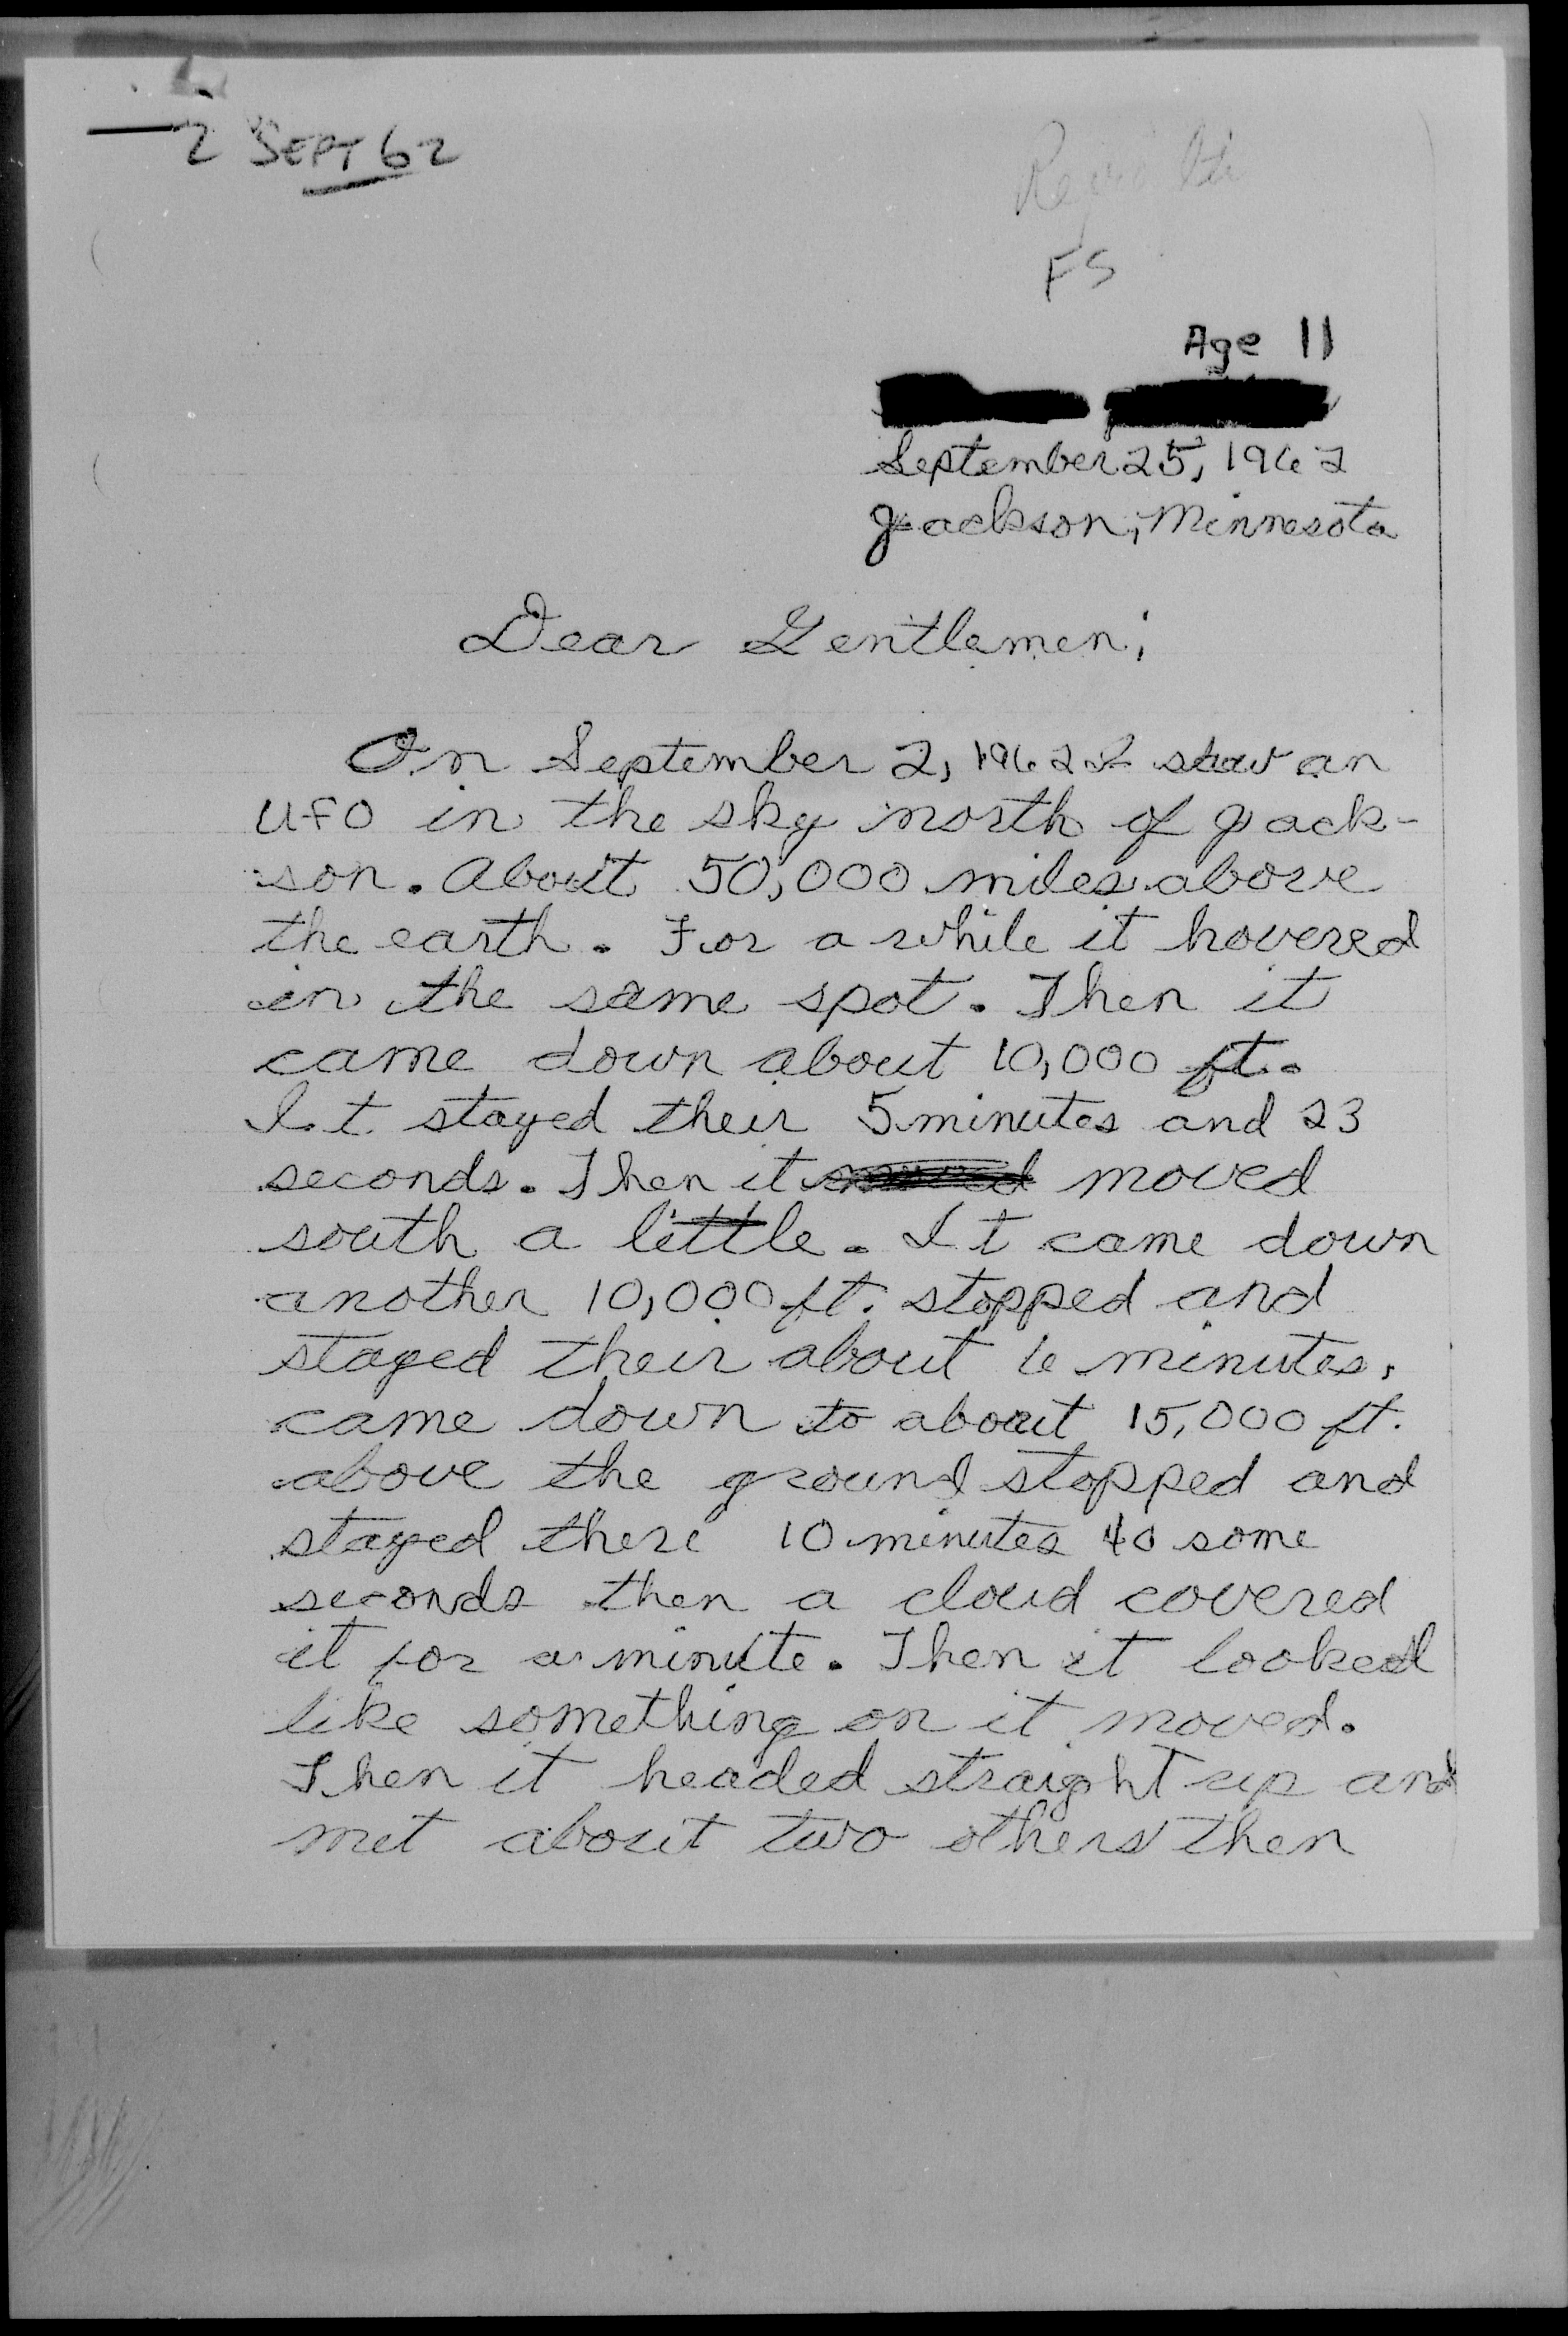 2 SEPT 62
FS
Age 11
September 25, 1962
Jackson, Minnesota
Dear Gentlemen;
On September 2, 1962 I saw an
UFO in the sky north of Jack-
son. About 50,000 miles above
the earth. For a while it hovered
in the same spot. Then it
came down about 10,000 ft.
It stayed their 5 minutes and 23
seconds. Then it moved
south a little. It came down
another 10,000 ft. stopped and
stayed their about 6 minutes,
came down to about 15,000 ft.
above the ground stopped and
stayed there 10 minutes 40 some
seconds then a cloud covered
it for a minute. Then it looked
like something on it moved.
Then it headed straight up and
met about two others then